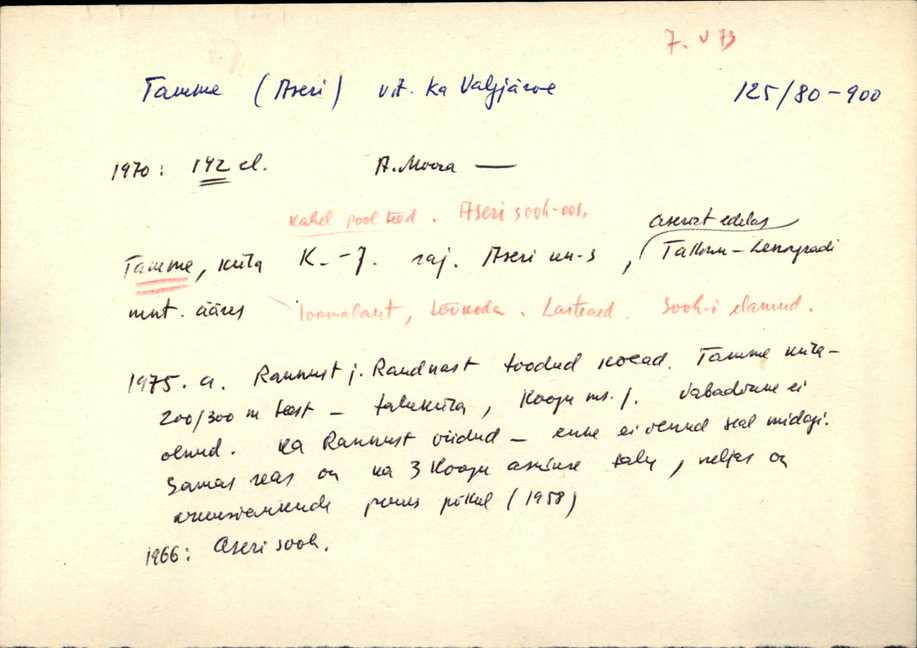 7. V 73
Tamme (Aseri) vt. ka Valgjärve 125/80-900
1970: 142 el. A. Moora —
kahel pool teed. Aseri sovh-oos.
Aserist edelas
Tamme, küla K.-J. raj. Aseri kn-s, Tallinn-Leningradi
mnt. ääres loomalaut, töökoda. Lasteaed. Sovh-i elamud.
1975. a. Rannust j. Randvast toodud kokku. Tamme küla-
200/300 m teest - talukküla, Koogu ms. j. Vabadikke ei
olnud. Ka Rannust viidud - enne ei olnud seal midagi.
Samas reas on ka 3 Koogu asunike talu, neljas on
põksul (1958)
1966: Aseri sovh.